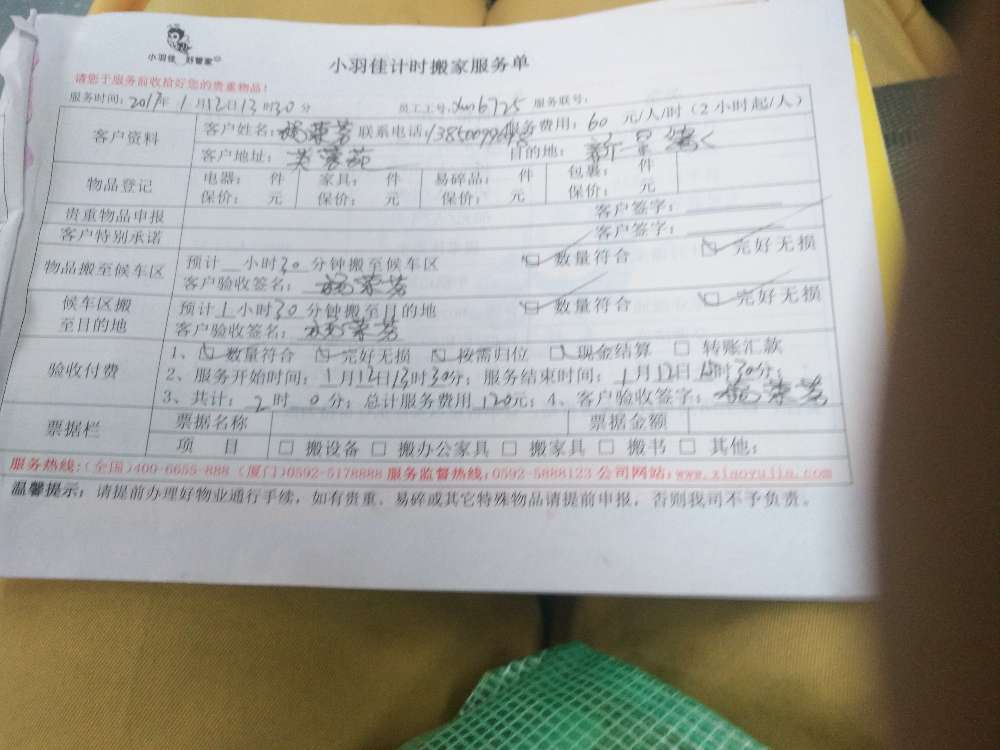 小羽佳 好管家
小羽佳计时搬家服务单
请您于服务前收拾好您的贵重物品!
服务时间: 2017年 1月12日13时30分 员工工号: xm6725 服务联号:
客户资料
客户姓名: 联系电话: 服务费用: 60 元/人/时 (2小时起/人)
客户地址: 芙蓉苑 目的地: 新景
物品登记
电器: 件 家具: 件 易碎品: 件 包裹: 件
保价: 元 保价: 元 保价: 元 保价: 元
贵重物品申报 客户签字:
客户特别承诺 客户签字:
物品搬至候车区
预计 小时30分钟搬至候车区 数量符合 完好无损
客户验收签名:
候车区搬
至目的地
预计1小时30分钟搬至目的地 数量符合 完好无损
客户验收签名:
验收付费
1、 数量符合 完好无损 按需归位 现金结算 □ 转账汇款
2、服务开始时间: 1月12日13时30分; 服务结束时间: 1月12日15时30分;
3、共计: 2时 0分; 总计服务费用 120元; 4、客户验收签字:
票据栏
票据名称 票据金额
项 目 □ 搬设备 □ 搬办公家具 □ 搬家具 □ 搬书 □ 其他:
服务热线:(全国)400-6655-888 (厦门)0592-5178888 服务监督热线:0592-5888123 公司网站:www.xiaoyujia.com
温馨提示: 请提前办理好物业通行手续, 如有贵重、易碎或其它特殊物品请提前申报, 否则我司不予负责。